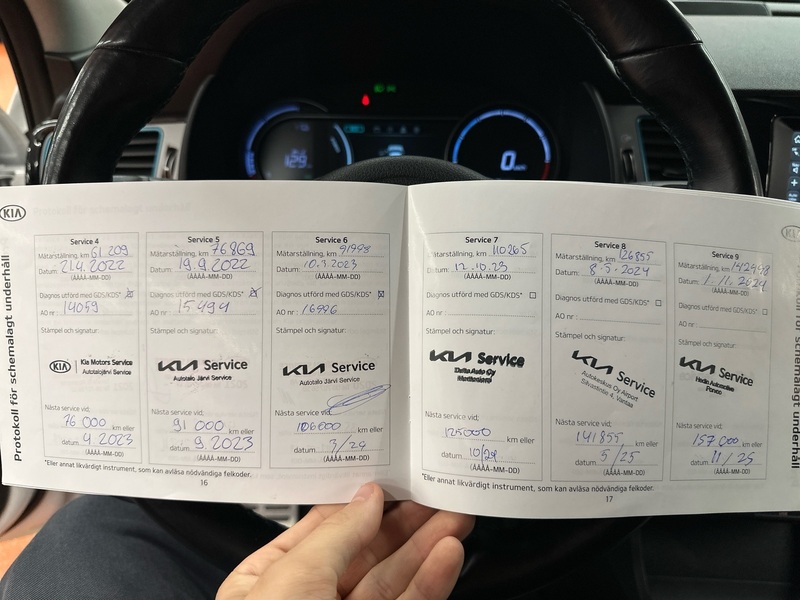 129
0
KIA
Protokoll för schemalagt underhåll
Service 4
Mätarställning, km 61 209
Datum: 21.4.2022
(ÅÅÅÅ-MM-DD)
Diagnos utförd med GDS/KDS*
AO nr: 14059
Stämpel och signatur:
KIA Kia Motors Service
Autotalojärvi Service
Nästa service vid:
76 000 km eller
datum 4.2023
(ÅÅÅÅ-MM-DD)
Service 5
Mätarställning, km 76869
Datum: 19.9.2022
(ÅÅÅÅ-MM-DD)
Diagnos utförd med GDS/KDS*
AO nr: 15494
Stämpel och signatur:
KIA Service
Autotalo Järvi Service
Nästa service vid:
91 000 km eller
datum 9.2023
(ÅÅÅÅ-MM-DD)
Service 6
Mätarställning, km 91998
Datum: 10.3.2023
(ÅÅÅÅ-MM-DD)
Diagnos utförd med GDS/KDS*
AO nr: 16996
Stämpel och signatur:
KIA Service
Autotalo Järvi Service
Nästa service vid:
106000 km eller
datum 3/24
(ÅÅÅÅ-MM-DD)
*Eller annat likvärdigt instrument, som kan avläsa nödvändiga felkoder.
16
Service 7
Mätarställning, km 110265
Datum: 12.10.23
(ÅÅÅÅ-MM-DD)
Diagnos utförd med GDS/KDS*
AO nr:
Stämpel och signatur:
KIA Service
Delta Auto Oy
Nästa service vid:
125000 km eller
datum 10/24
(ÅÅÅÅ-MM-DD)
Service 8
Mätarställning, km 126855
Datum: 8.5.2024
(ÅÅÅÅ-MM-DD)
Diagnos utförd med GDS/KDS*
AO nr:
Stämpel och signatur:
KIA Service
Autokeskus Oy Airport
Silvastintie 4, Vantaa
Nästa service vid:
141855 km eller
datum 5/25
(ÅÅÅÅ-MM-DD)
Service 9
Mätarställning, km
Datum: 1.11.2024
(ÅÅÅÅ-MM-DD)
Diagnos utförd med GDS/KDS*
AO nr:
Stämpel och signatur:
KIA Service
Hedin Automotive
Nästa service vid:
157 000 km eller
datum 11/25
(ÅÅÅÅ-MM-DD)
*Eller annat likvärdigt instrument, som kan avläsa nödvändiga felkoder.
17